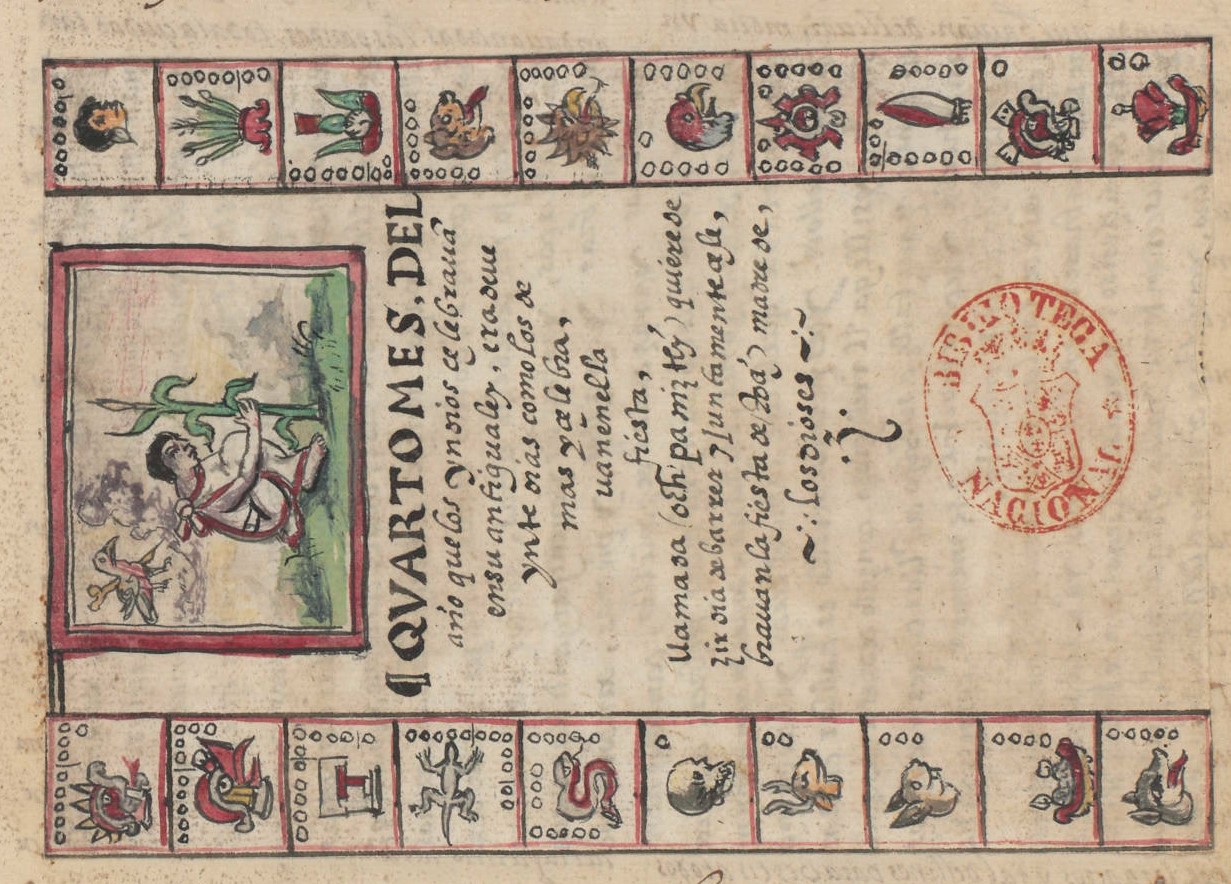 ¶ QVARTOMES, DEL
año que los yndios çelebrauã
en su antiguales, era de ue
ynte dias como los de
mas y çelebra,
uanenella
fiesta,
llamada (ochpaniztly) quiere de
zir dia de barrer y Juntamente çele,
brauan la fiesta de madre de,
~∴ los dioses ~∴~
BIBLIOTECA
NACIONAL